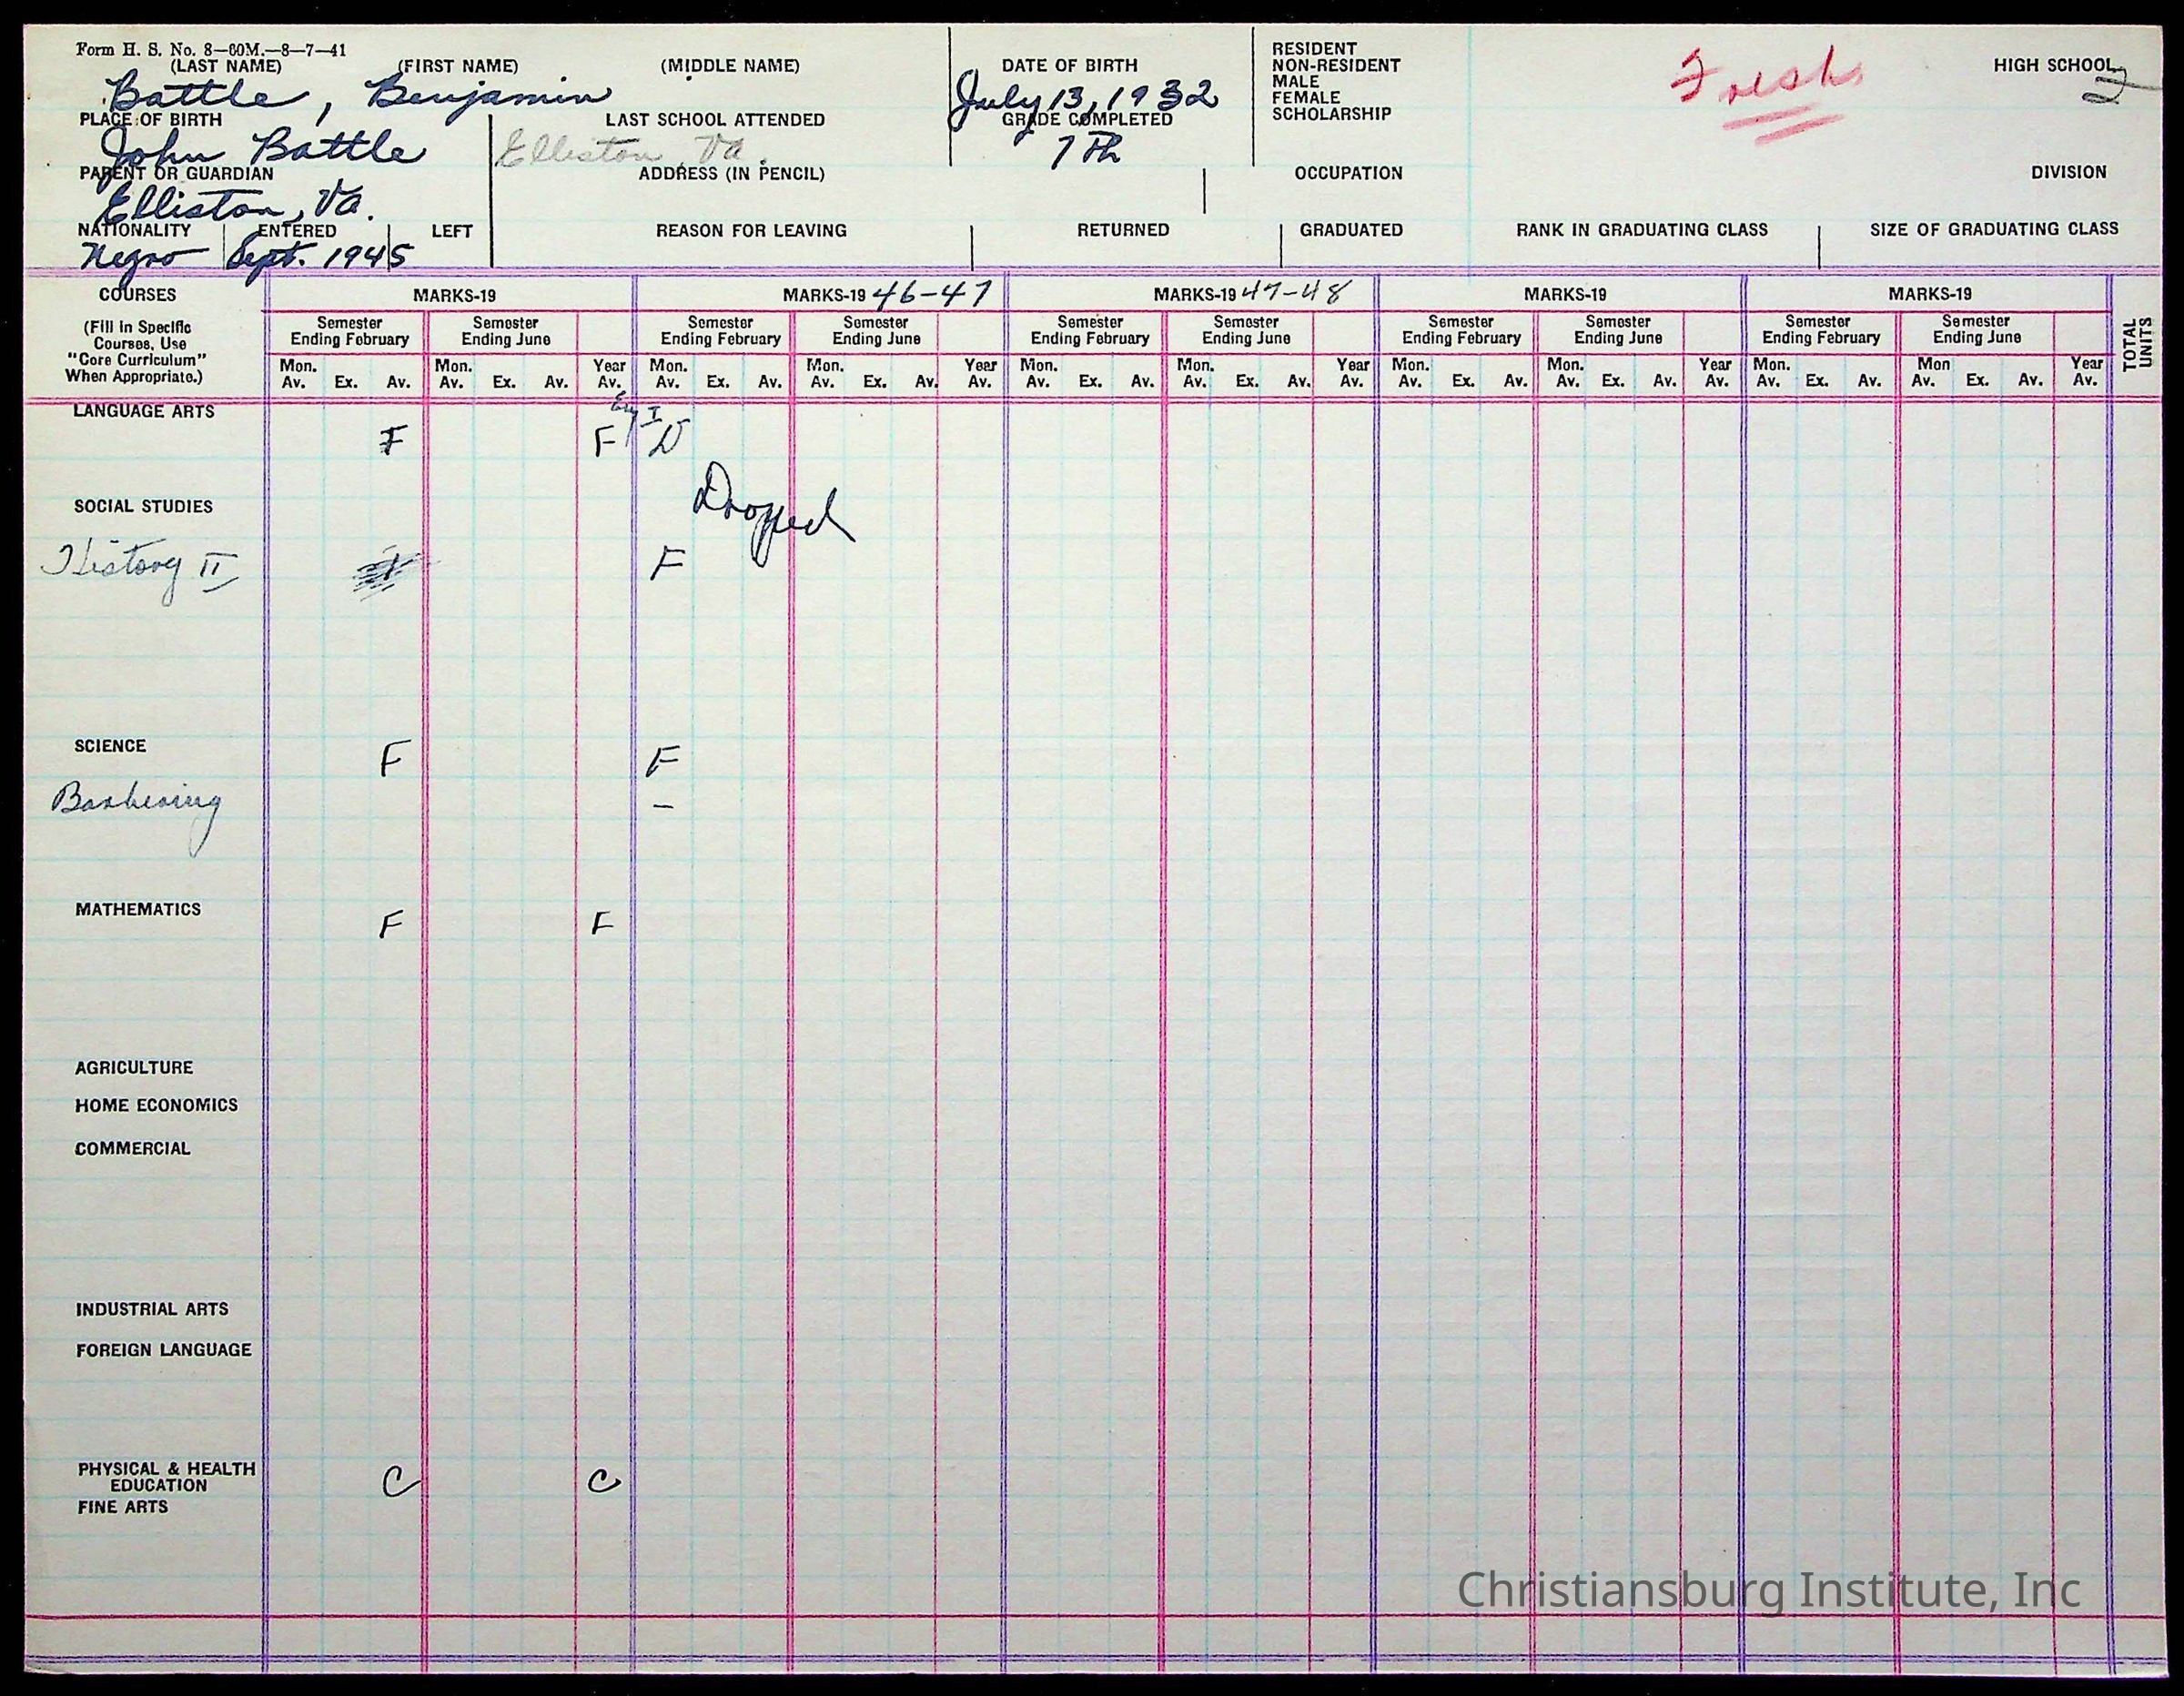 Form H. S. No. 8—60M.—8—7—41
(LAST NAME) (FIRST NAME) (MIDDLE NAME) DATE OF BIRTH
Battle, Benjamin July 13, 1932
RESIDENT
NON-RESIDENT
MALE
FEMALE
SCHOLARSHIP
Fresh
HIGH SCHOOL
PLACE OF BIRTH LAST SCHOOL ATTENDED GRADE COMPLETED
John Battle Elliston, Va. 7th
PARENT OR GUARDIAN ADDRESS (IN PENCIL) OCCUPATION DIVISION
Elliston, Va.
NATIONALITY ENTERED LEFT REASON FOR LEAVING RETURNED GRADUATED RANK IN GRADUATING CLASS SIZE OF GRADUATING CLASS
Negro Sept. 1945
COURSES MARKS-19 MARKS-19 46-47 MARKS-19 47-48 MARKS-19 MARKS-19
(Fill in Specific
Courses, Use
"Core Curriculum"
When Appropriate.)
Semester Semester Semester Semester Semester Semester Semester Semester Semester Semester
Ending February Ending June Ending February Ending June Ending February Ending June Ending February Ending June Ending February Ending June
Mon. Mon. Year Mon. Mon. Year Mon. Mon. Year Mon. Mon. Year Mon. Mon Year
Av. Ex. Av. Av. Ex. Av. Av. Av. Ex. Av. Av. Ex. Av. Av. Av. Ex. Av. Av. Ex. Av. Av. Av. Ex. Av. Av. Ex. Av. Av. Av. Ex. Av. Av. Ex. Av. Av.
TOTAL
UNITS
LANGUAGE ARTS Eng I
F F D
Dropped
SOCIAL STUDIES
History II F
SCIENCE F F
Barbering –
MATHEMATICS F F
AGRICULTURE
HOME ECONOMICS
COMMERCIAL
INDUSTRIAL ARTS
FOREIGN LANGUAGE
PHYSICAL & HEALTH
EDUCATION C C
FINE ARTS
Christiansburg Institute, Inc